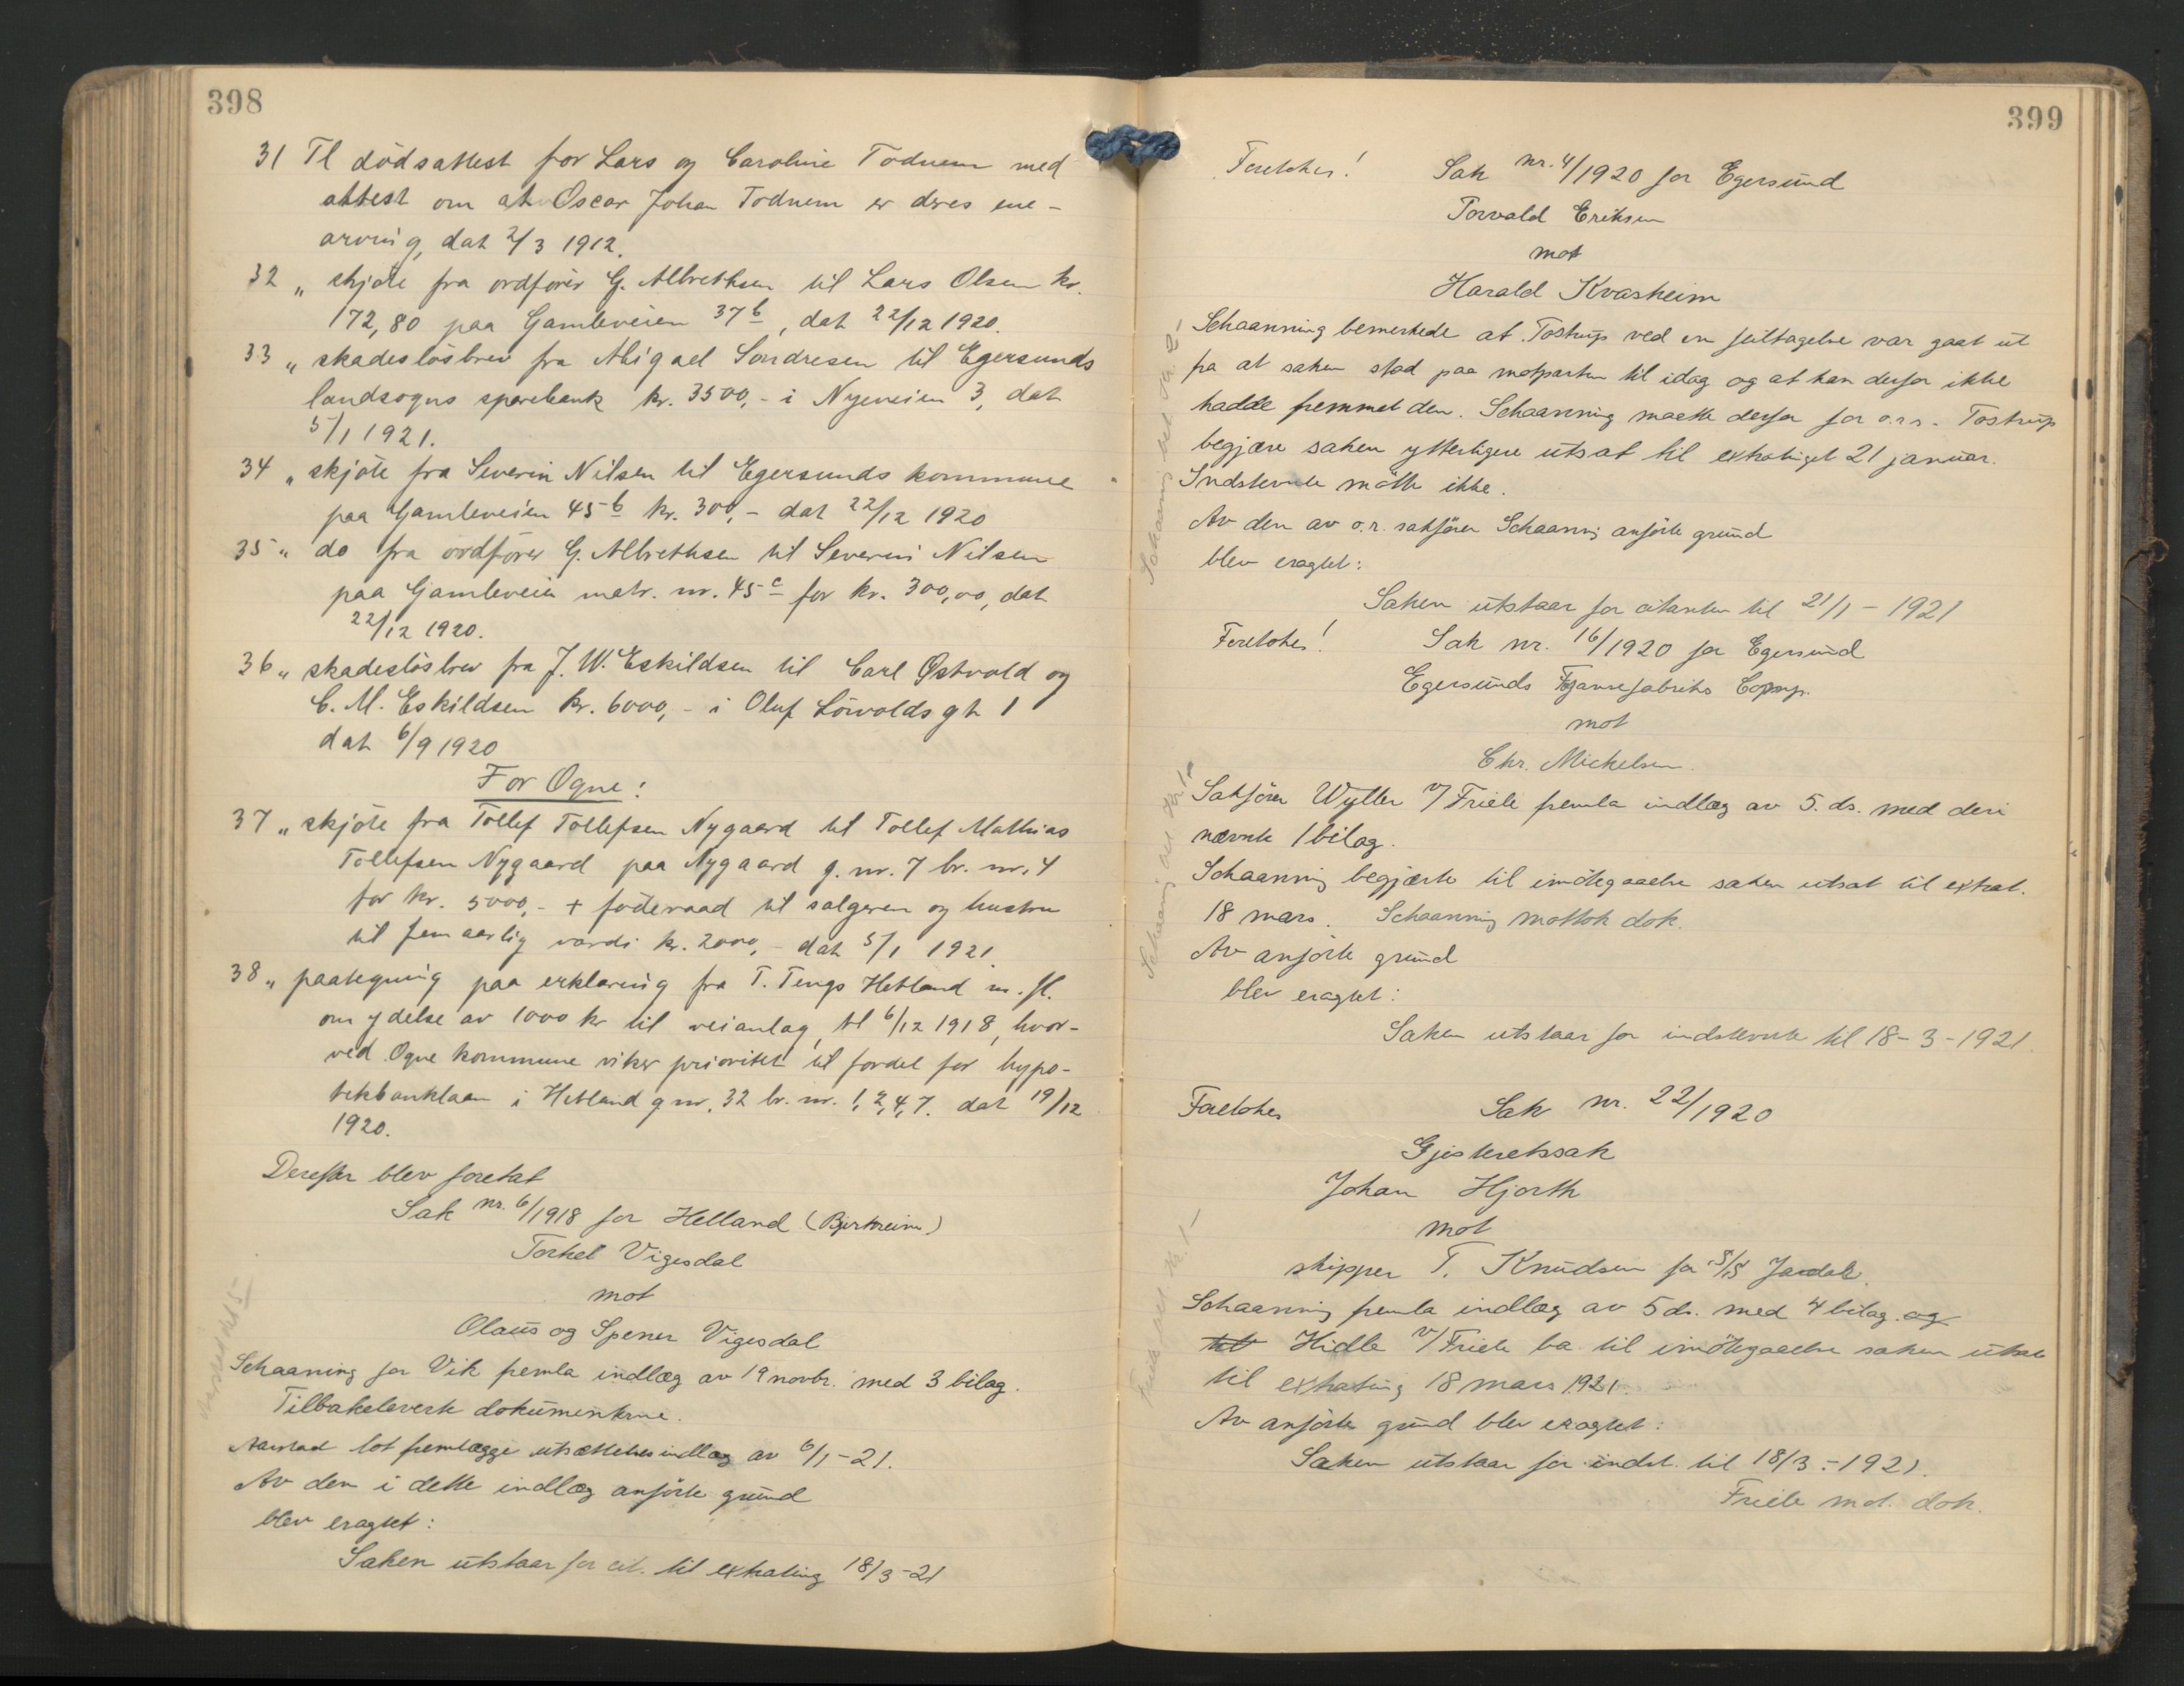 398
31 Tl dödsattest for Lars og Caroline Todnem med
attest om at Oscar Johan Todnem er deres ene-
arving, dat 2/3 1912.
32 „ skjöte fra ordförer G. Albrethsen til Lars Olsen kr.
172,80 paa Gamleveien 37b, dat 22/12 1920.
33 „ skadeslösbrev fra Abigael Sondresen til Egersunds
landsogns sparebank kr. 3500,- i Nyeveien 3, dat
5/1 1921.
34 „ skjöte fra Severin Nilsen til Egersunds kommune
paa Gamleveien 45b kr. 300,- dat 22/12 1920
35 „ do fra ordförer G. Albrethsen til Severin Nilsen
paa Gamleveien matr. nr. 45c for kr. 300,00, dat
22/12 1920.
36 „ skadeslösbrev fra J. W. Eskildsen til Carl Østvold og
C. M. Eskildsen kr. 6000,- i Oluf Lövolds gt 1
dat 6/9 1920
For Ogne:
37 „ skjöte fra Tollef Tollefsen Nygaard til Tollef Mathias
Tollefsen Nygaard paa Nygaard g. nr. 7 br. nr. 4
for kr. 5000,- + föderaad til sælgeren og hustru
til fem aarlig værdi kr. 2000,- dat 5/1 1921.
38 „ paategning paa erklæring fra T. Tengs Hetland m. fl.
om ydelse av 1000 kr til veianlæg, tl 6/12 1918, hvor-
ved Ogne kommune viker prioritet til fordel for hypo-
tekbanklaan i Hetland g nr. 32 br. nr. 1, 2, 4, 7. dat 19/12
1920.
Derefter blev foretat
Sak nr. 6/1918 for Helland (Bjerkreim)
Torkel Vigesdal
mot
Olaus og Spener Vigesdal
Schaaning for Vik femla indlæg av 19 novbr. med 3 bilag.
Tilbakeleverte dokumenterne.
Aarstad lot fremlægge utsættelsesindlæg av 6/1-21.
Av den i dette indlæg anförte grund
blev eragtet:
Saken utstaar for cit. til extrating 18/3-21
399
Foretokes! Sak nr. 4/1920 for Egersund
Torvald Eriksen
mot
Harald Kvasheim
Schaanning bemerkede at Tostrup ved en feiltagelse var gaat ut
fra at saken stod paa motparten til idag og at han derfor ikke
hadde fremmet den. Schaanning maatte derfor for o.r.s. Tostrup
begjære saken ytterligere utsat til extratinget 21 januar.
Indstevnte mötte ikke.
Av den av o.r. sakförer Schaanning anförte grund
blev eragtet:
Saken utstaar for citanten til 21/1 - 1921
Foretokes! Sak nr. 16/1920 for Egersund
Egersunds Fajansefabriks Comp.
mot
Chr. Mickelsen.
Sakförer Wyller v/ Friele femla indlæg av 5. ds. med deri
nævnte 1 bilag.
Schaanning begjærte til imötegaaelse saken utsat til extrat.
18 mars. Schaanning mottok dok.
Av anförte grund
blev eragtet:
Saken utstaar for indstevnte til 18-3-1921.
Foretokes Sak nr. 22/1920
Gjesteretssak
Johan Hjorth
mot
skipper T. Knudsen for S/S
Schaanning femla indlæg av 5 ds. med 4 bilag og
Hidle v/ Friele ba til imötegaaelse saken utsat
til extrating 18 mars 1921.
Av anförte grund blev eragtet:
Saken utstaar for indst. til 18/3 - 1921.
Friele mot. dok.